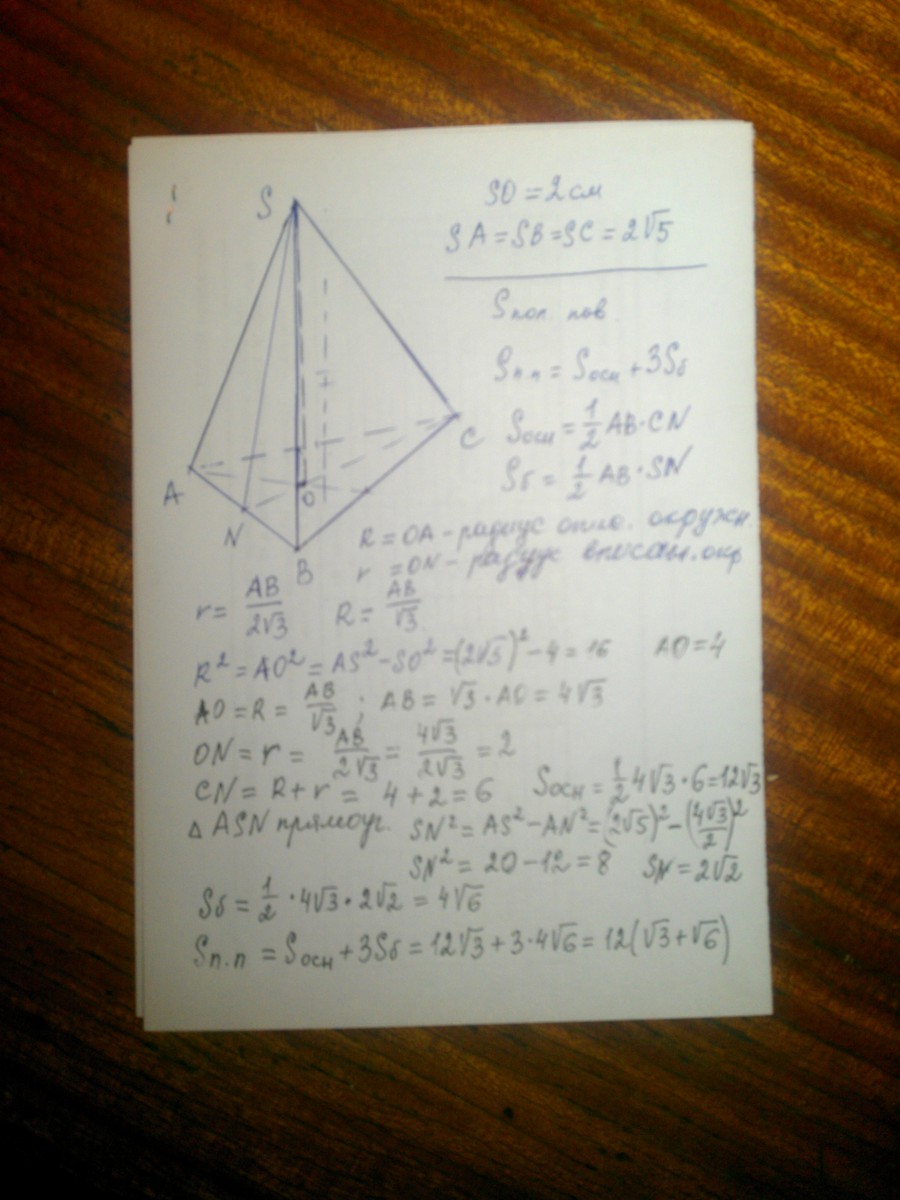 S
A
N
B
O
C
SO = 2 см
SA = SB = SC = 2√5
Sпол. пов.
Sп.п = Sосн + 3Sб
Sосн = 1/2 AB · CN
Sб = 1/2 AB · SN
R = OA – радиус опис. окружн.
r = ON – радиус вписан. окр
r = AB/2√3 R = AB/√3
R² = AO² = AS² – SO² = (2√5)² – 4 = 16 AO = 4
AO = R = AB/√3 ; AB = √3 · AO = 4√3
ON = r = AB/2√3 = 4√3/2√3 = 2
CN = R + r = 4 + 2 = 6 Sосн = 1/2 4√3 · 6 = 12√3
Δ ASN прямоуг. SN² = AS² – AN² = (2√5)² – (4√3/2)²
SN² = 20 – 12 = 8 SN = 2√2
Sб = 1/2 · 4√3 · 2√2 = 4√6
Sп.п = Sосн + 3Sб = 12√3 + 3·4√6 = 12(√3 + √6)